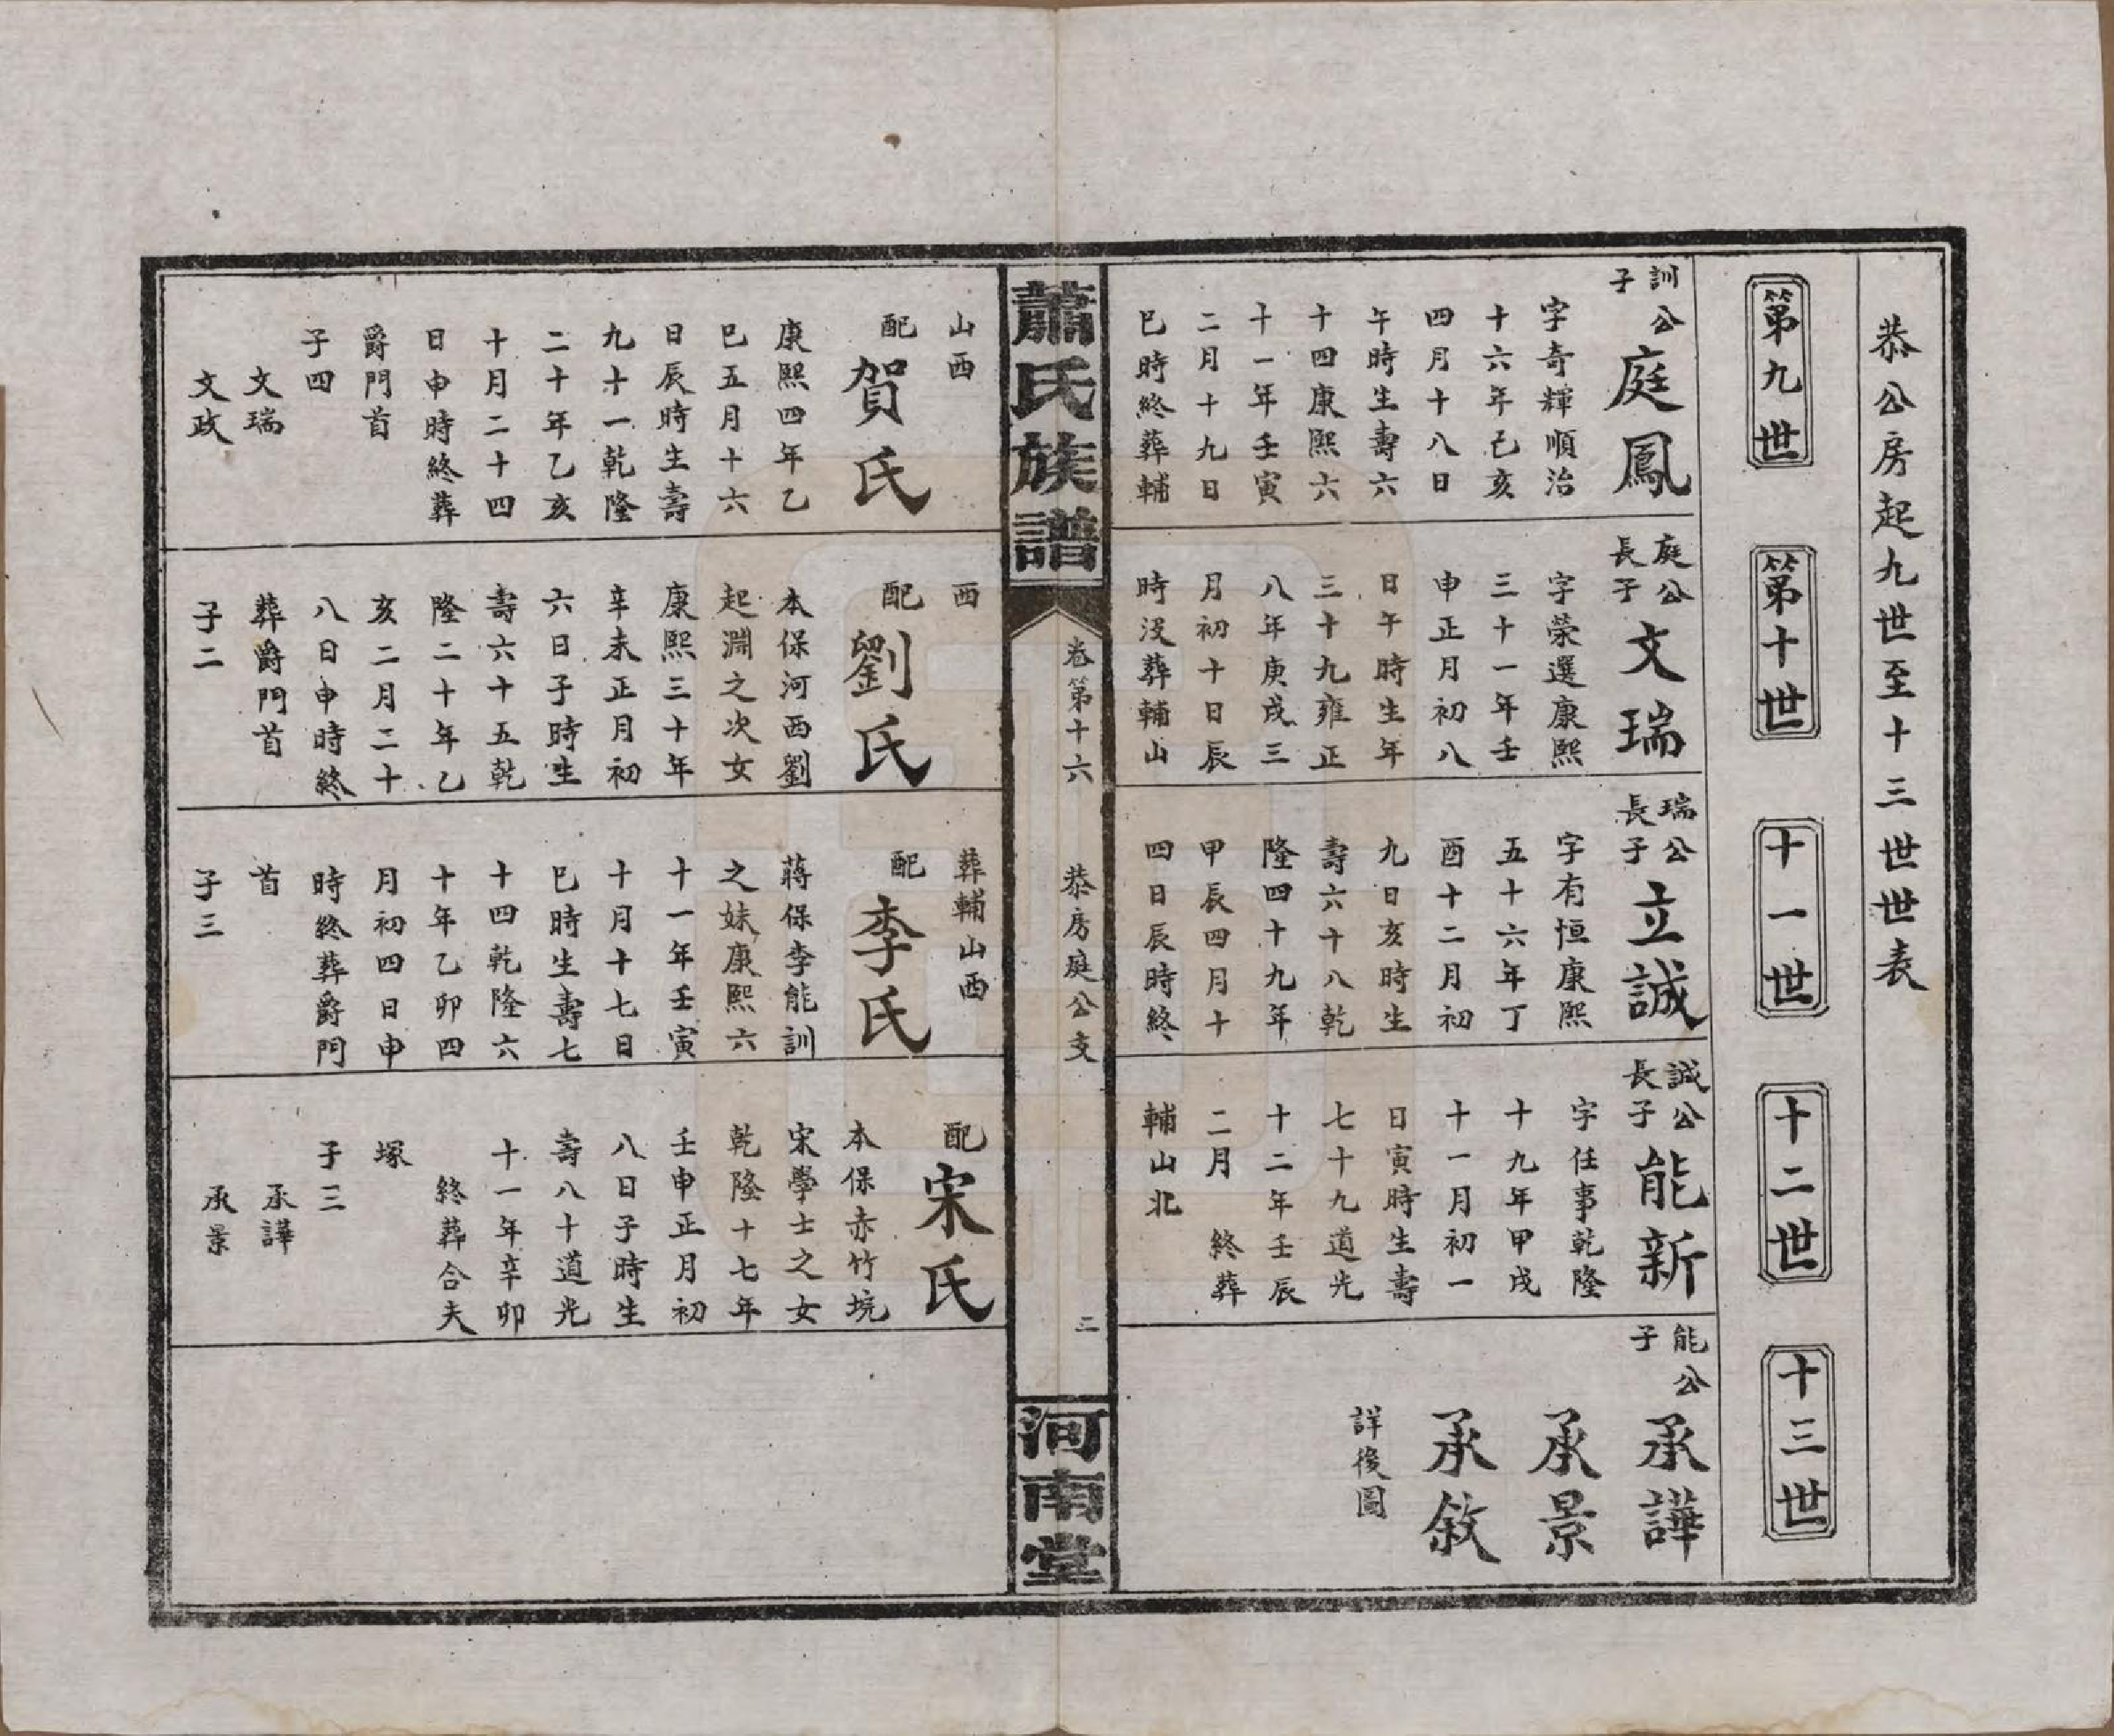 恭公房起九世至十三世世表
第九世
第十世
十一世
十二世
十三世
訓公
子
庭鳳
字奇輝順治
十六年己亥
四月十八日
午時生壽六
十四康熙六
十一年壬寅
二月十九日
巳時終葬輔
庭公
長子
文瑞
字榮選康熙
三十一年壬
申正月初八
日午時生年
三十九雍正
八年庚戌三
月初十日辰
時沒葬輔山
瑞公
長子
立誠
字有恒康熙
五十六年丁
酉十二月初
九日亥時生
壽六十八乾
隆四十九年
甲辰四月十
四日辰時終
誠公
長子
能新
字任事乾隆
十九年甲戌
十一月初一
日寅時生壽
七十九道光
十二年壬辰
二月 終葬
輔山北
能公
子
承譁
承景
承敘
詳後圖
蕭氏族譜
卷第十六
恭房庭公支
二
河南堂
山西
配賀氏
康熙四年乙
巳五月十六
日辰時生壽
九十一乾隆
二十年乙亥
十月二十四
日申時終葬
爵門首
子四
文瑞
文政
西
配劉氏
本保河西劉
起淵之次女
康熙三十年
辛未正月初
六日子時生
壽六十五乾
隆二十年乙
亥二月二十
八日申時終
葬爵門首
子二
葬輔山西
配李氏
蔣保李能訓
之妹康熙六
十一年壬寅
十月十七日
巳時生壽七
十四乾隆六
十年乙卯四
月初四日申
時終葬爵門
首
子三
配宋氏
本保赤竹境
宋學士之女
乾隆十七年
壬申正月初
八日子時生
壽八十道光
十一年辛卯
終葬合夫
塚
子三
承譁
承景